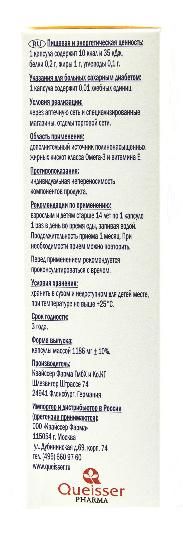 RU Пищевая и энергетическая ценность:
1 капсула содержит 10 ккал и 35 кДж,
белки 0,2 г, жиры 1 г, углеводы 0,1 г.
Указания для больных сахарным диабетом:
1 капсула содержит 0,01 хлебных единиц.
Условия реализации:
через аптечную сеть и специализированные
магазины, отделы торговой сети.
Область применения:
дополнительный источник полиненасыщенных
жирных кислот класса Омега-3 и витамина Е.
Противопоказания:
индивидуальная непереносимость
компонентов продукта.
Рекомендации по применению:
взрослым и детям старше 14 лет по 1 капсуле
1 раз в день во время еды, запивая водой.
Продолжительность приема 1 месяц. При
необходимости прием можно повторить.
Перед применением рекомендуется
проконсультироваться с врачом.
Условия хранения:
хранить в сухом и недоступном для детей месте,
при температуре не выше +25°С.
Срок годности:
3 года.
Форма выпуска:
капсулы массой 1186 мг ± 10%.
Производитель:
Квайссер Фарма ГмбХ и Ко.КГ
Шлезвигер Штрассе 74
24941 Фленсбург, Германия
Импортер и дистрибьютор в России
(претензии принимаются):
ООО «Квайссер Фарма»
115054 г. Москва
ул. Дубининская д.69, корп. 74
тел. (495) 660 97 60
www.queisser.ru
Queisser
PHARMA